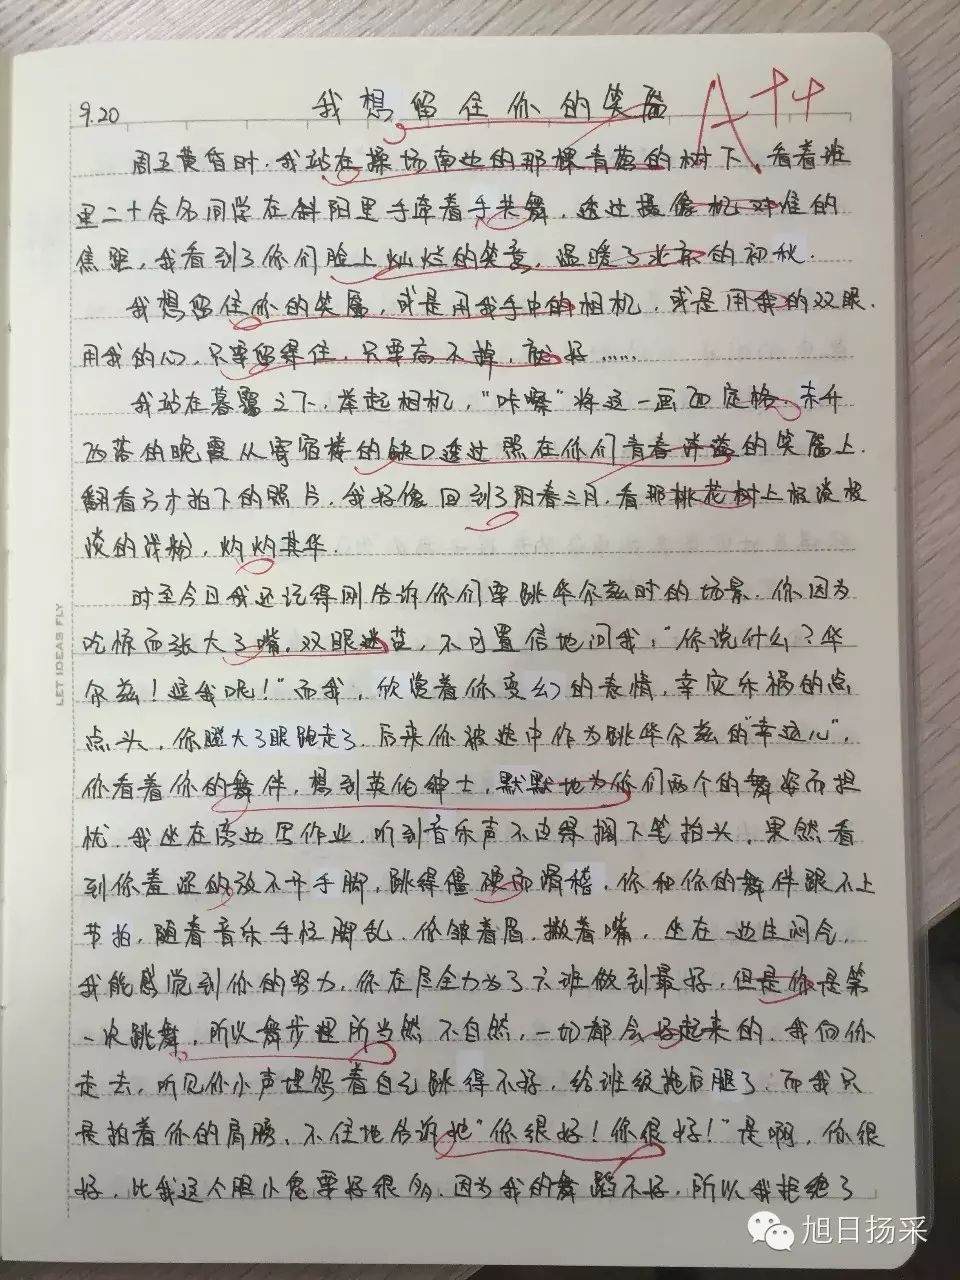 9.20 我想留住你的笑靥 A++
周五黄昏时，我站在操场南边的那棵青葱的树下，看着班
里二十余名同学在斜阳里手牵着手共舞，透过摄像机对准的
焦距，我看到了你们脸上灿烂的笑意，温暖了北京的初秋．
我想留住你的笑靥，或是用我手中的相机，或是用我的双眼．
用我的心，只要留得住，只要忘不掉，就好……
我站在暮霭之下，举起相机，“咔嚓”将这一画面定格．东升
西落的晚霞从寄宿楼的缺口透过照在你们青春洋溢的笑靥上．
翻看方才拍下的照片，我好像回到了阳春三月，看那桃花树上极淡极
淡的浅粉，灼灼其华．
时至今日我还记得刚告诉你们要跳华尔兹时的场景．你因为
吃惊而张大了嘴，双眼迷茫，不可置信地问我：“你说什么？华
尔兹！逗我呢！”而我，欣赏着你变幻的表情，幸灾乐祸的点
点头，你瞪大了眼跑走了．后来你被选中作为跳华尔兹的“幸运儿”，
你看着你的舞伴，想到英伦绅士，默默地为你们两个的舞姿而担
忧．我坐在旁边写作业，听到音乐声不由得搁下笔抬头，果然看
到你羞涩的放不开手脚，跳得僵硬而滑稽．你和你的舞伴跟不上
节拍，随着音乐手忙脚乱．你皱着眉，撇着嘴，坐在一边生闷气，
我能感觉到你的努力，你在尽全力为了六班做到最好，但是你是第
一次跳舞，所以舞步理所当然不自然，一切都会好起来的．我向你
走去，听见你小声埋怨着自己跳得不好，给班级拖后腿了．而我只
是拍着你的肩膀，不住地告诉她“你很好！你很好！”是啊，你很
好，比我这个胆小鬼要好很多．因为我的舞蹈不好，所以我拒绝了
LET IDEAS FLY
旭日扬采